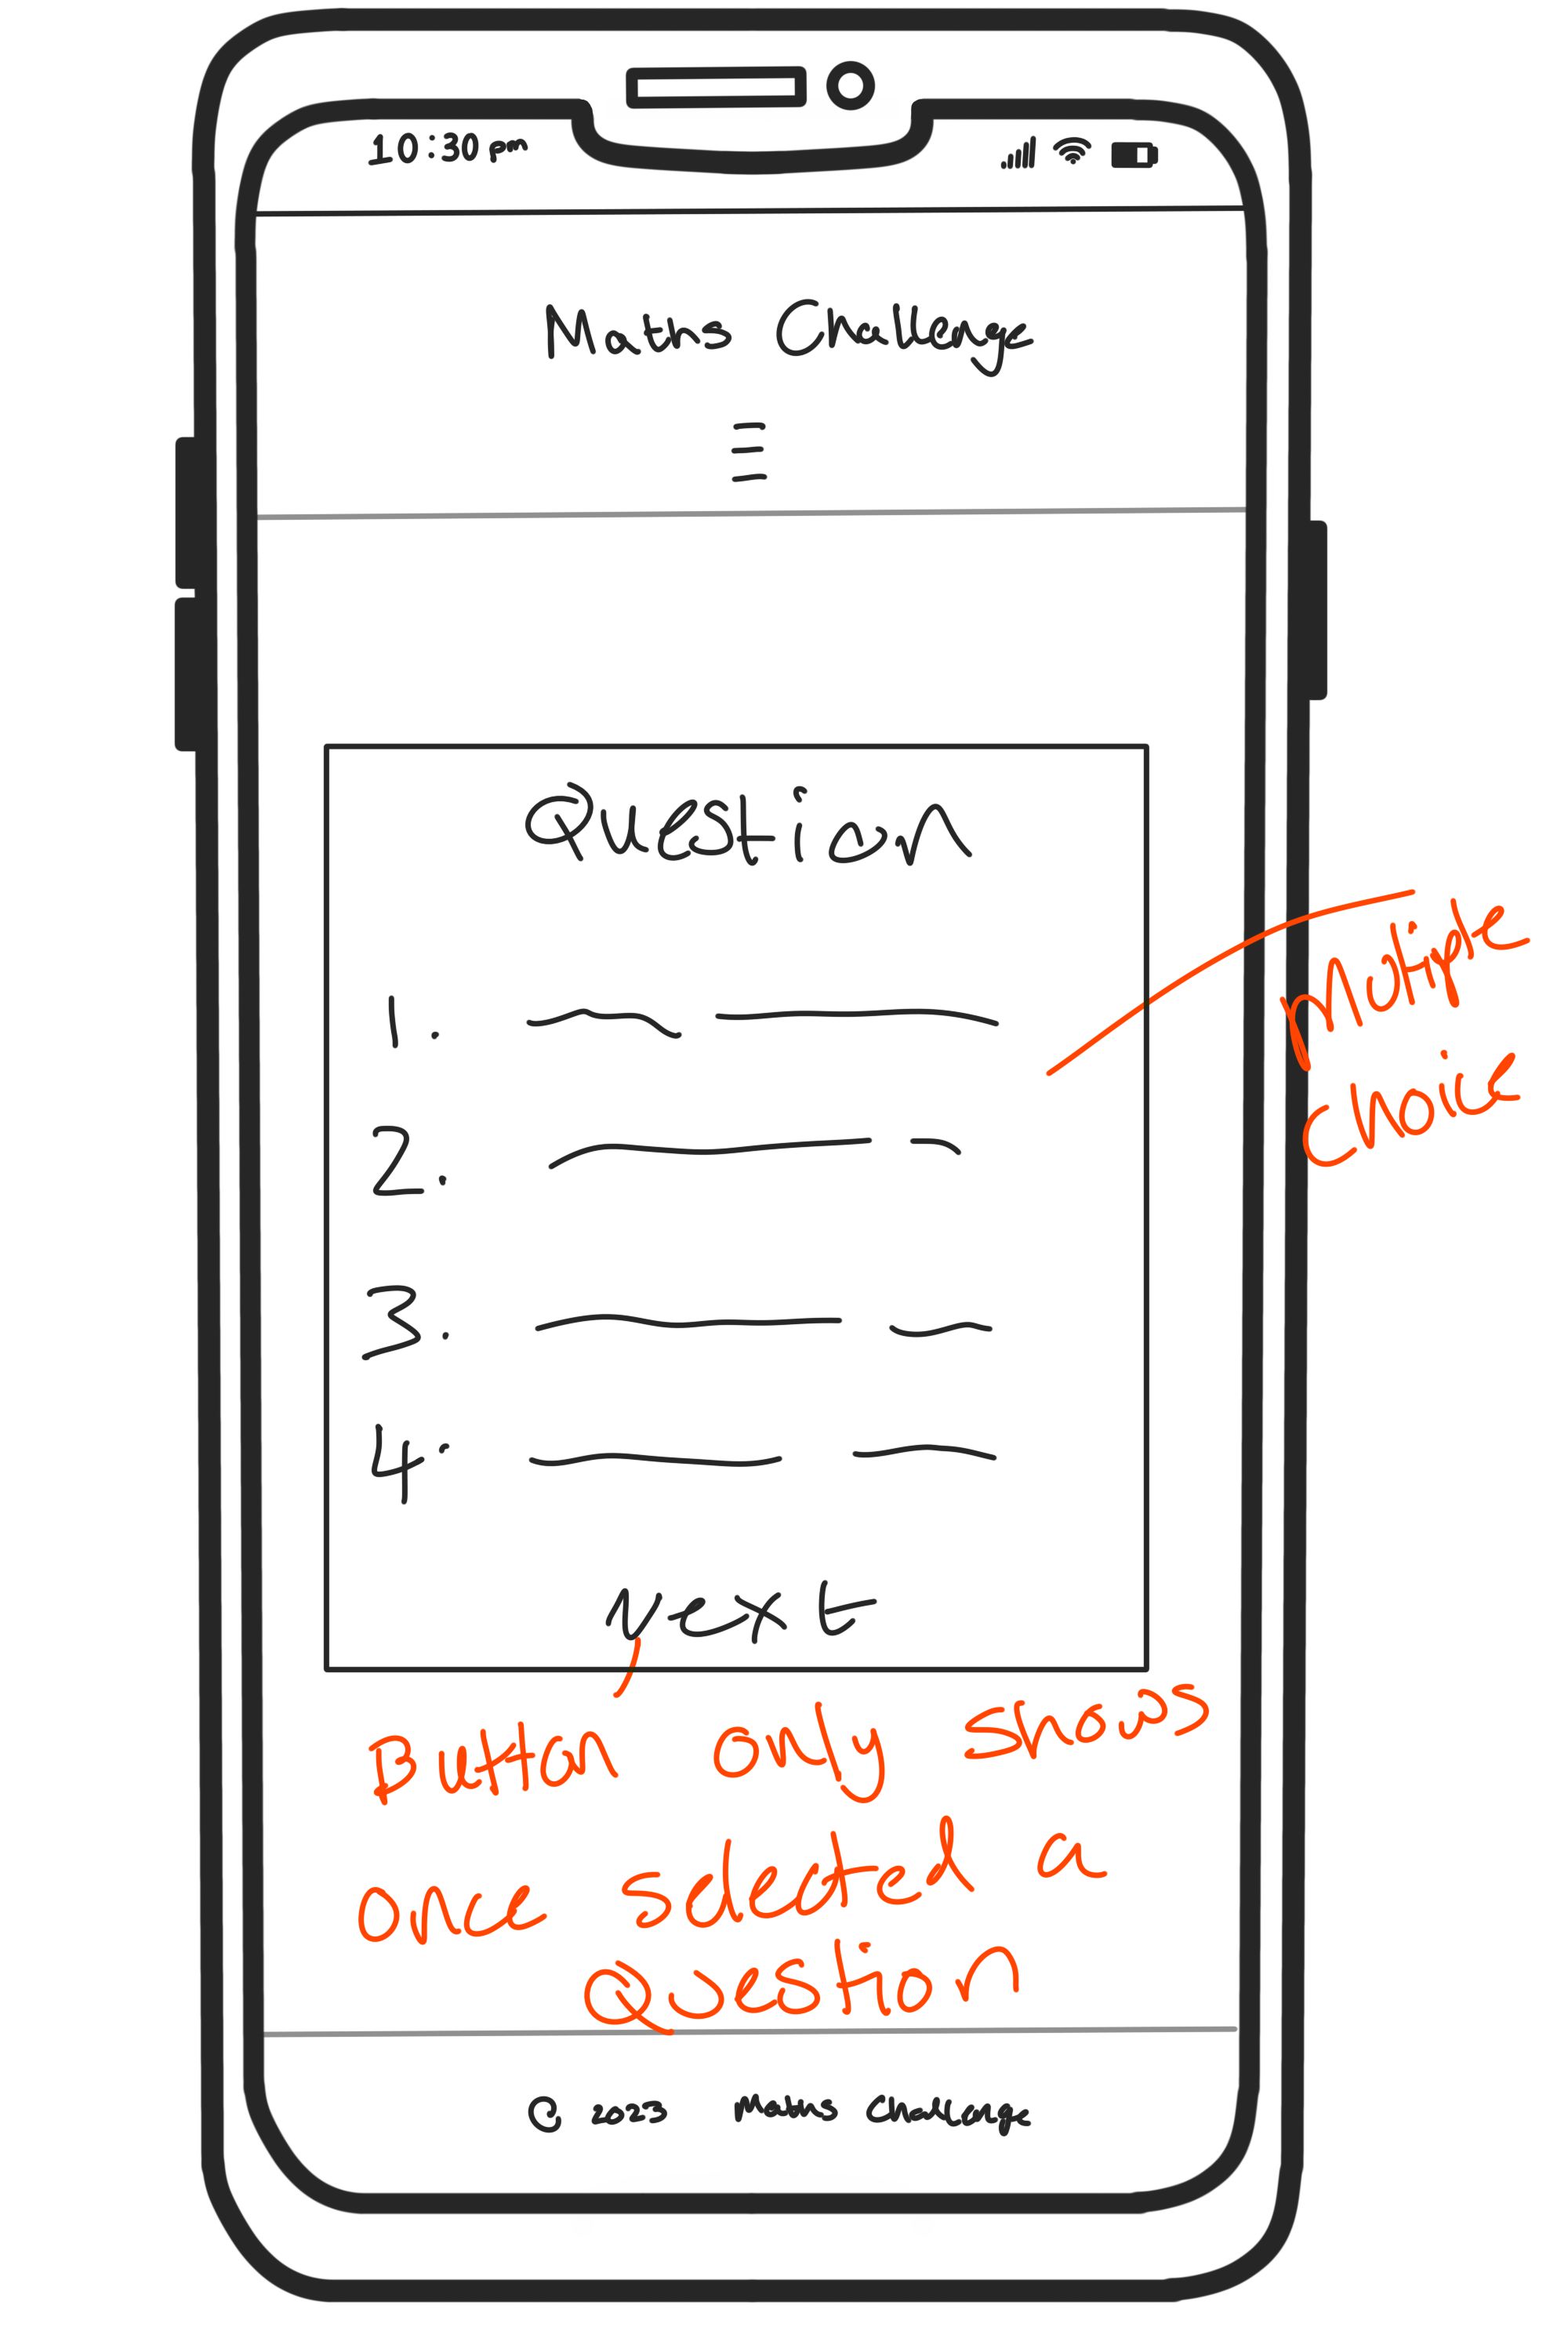 10:30 pm
Maths Challenge
Question
1.
2.
3.
4.
Mutiple
Choice
Next
Button only shows
once selected a
Question
© 2023 Maths Challenge